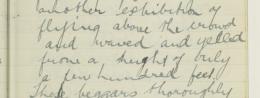 another exhibition of
flying above the crowd
and waved and yelled
from a height of only
a few hundred feet
These beggars thoroughly